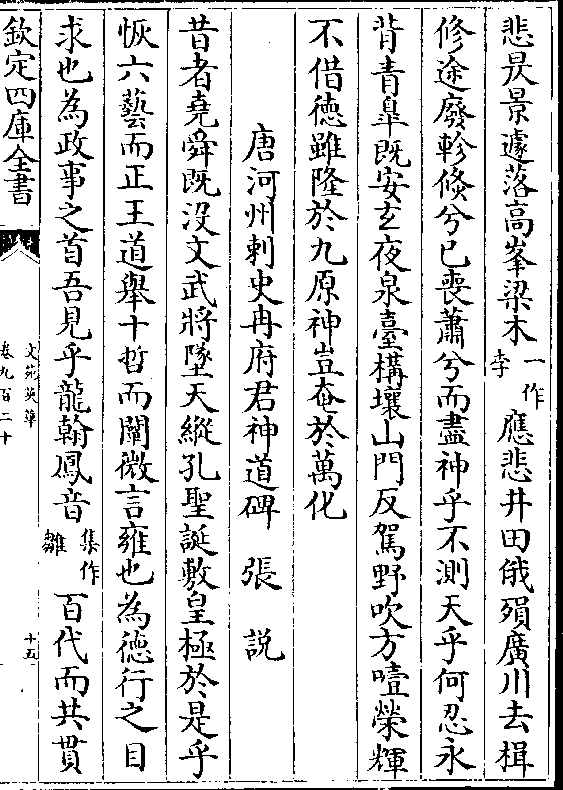 悲昃景遽落高峯梁木一作李應悲井田俄殞廣川去楫
修途廢軫倐兮已喪蕭兮而盡神乎不測天乎何忍永
背青臯既安玄夜泉臺構壤山門反駕野吹方噎榮輝
不借德雖隆於九原神豈奄於萬化
唐河州刺史冉府君神道碑 張說
昔者堯舜既沒文武將墜天縱孔聖誕敷皇極於是乎
恢六藝而正王道舉十哲而闡微言雍也為德行之目
求也為政事之首吾見乎龍翰鳳音集作雛百代而共貫
欽定四庫全書
文苑英華
卷九百二十
十五